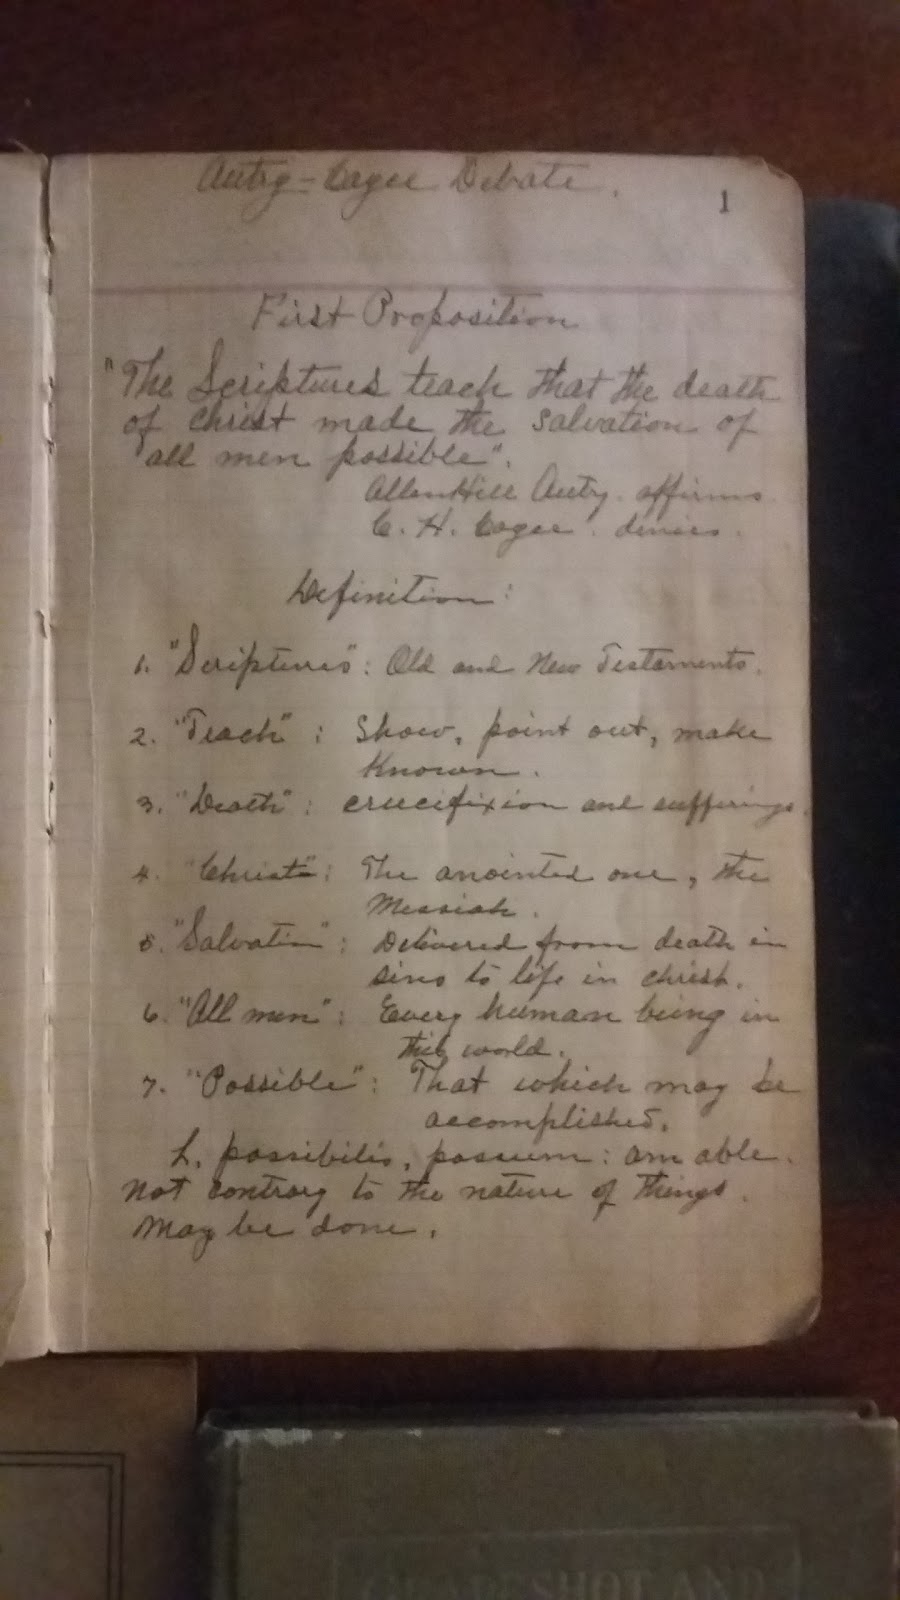 Autry-Cagle Debate.
1
First Proposition
"The Scriptures teach that the death
of Christ made the salvation of
all men possible".
Allen Hill Autry. affirms.
C. H. Cagle. denies.
Definition:
1. "Scriptures": Old and New Testaments.
2. "Teach": Show, point out, make
known.
3. "Death": crucifixion and sufferings.
4. "Christ": The anointed one, the
Messiah.
5. "Salvation": Delivered from death in
sins to life in Christ.
6. "All men": Every human being in
this world.
7. "Possible": That which may be
accomplished.
L. possibilis, possum: am able.
Not contrary to the nature of things.
May be done.
GRAPESHOT AND